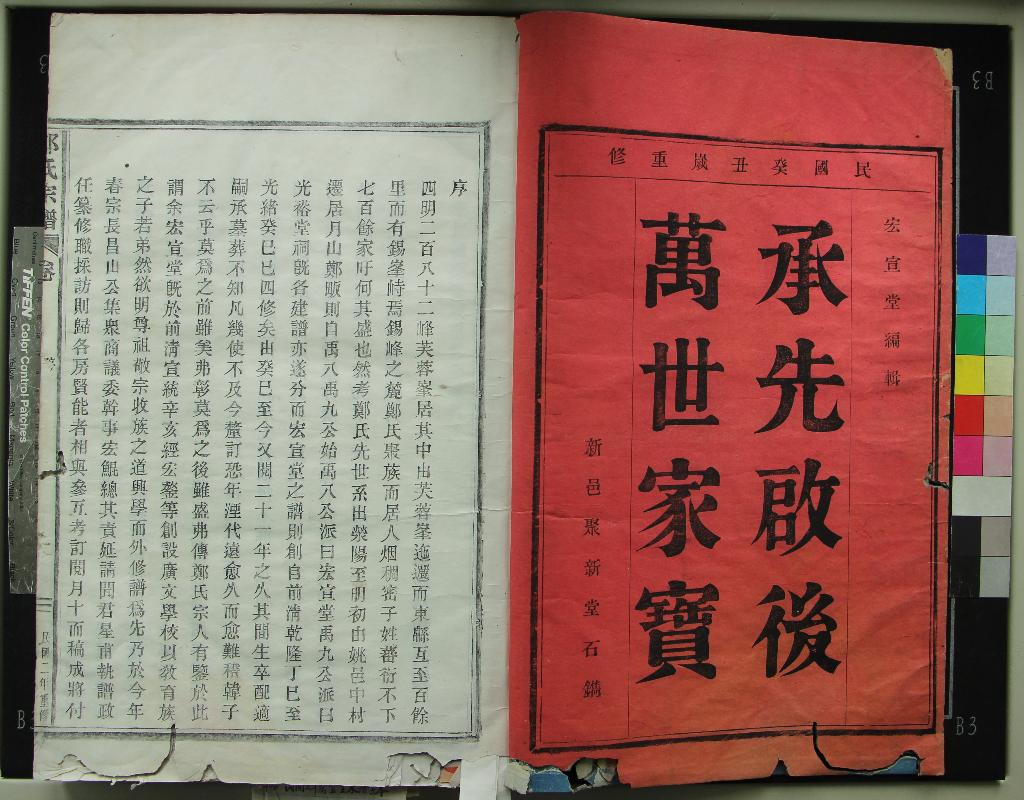 民國癸丑歲重修
宏宣堂編輯
承先啟後
萬世家寶
新邑聚新堂石鐫
序
四明二百八十二峰芙蓉峯居其中由芙蓉峯迤邐而東緜亙至百餘
里而有錫峯峙焉錫峰之麓鄭氏聚族而居人烟稠密子姓蕃衍不下
七百餘家吁何其盛也然考鄭氏先世系出滎陽至明初由姚邑中村
遷居月山鄭販則自禹八禹九公始禹八公派曰宏宣堂禹九公派曰
光裕堂祠旣各建譜亦遂分而宏宣堂之譜則創自前淸乾隆丁巳至
光緒癸巳已四修矣由癸巳至今又閱二十一年之久其間生卒配適
嗣承墓葬不知凡幾使不及今釐訂恐年湮代遠愈久而愈難稽韓子
不云乎莫爲之前雖美弗彰莫爲之後雖盛弗傳鄭氏宗人有鑒於此
謂余宏宣堂旣於前淸宣統辛亥經宏鏊等創設廣文學校以敎育族
之子若弟然欲明尊祖敬宗收族之道興學而外修譜爲先乃於今年
春宗長昌山公集衆商議委幹事宏鯤總其責延請閏君星甫執譜政
任纂修職採訪則歸各房賢能者相與參互考訂閱月十而稿成將付
鄭氏宗譜
卷
民國二年重修
TIFFEN Color Control Patches
B3
B3